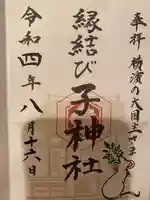 奉拝 横濱の大国主さま
縁結び
子神社
令和四年八月十六日